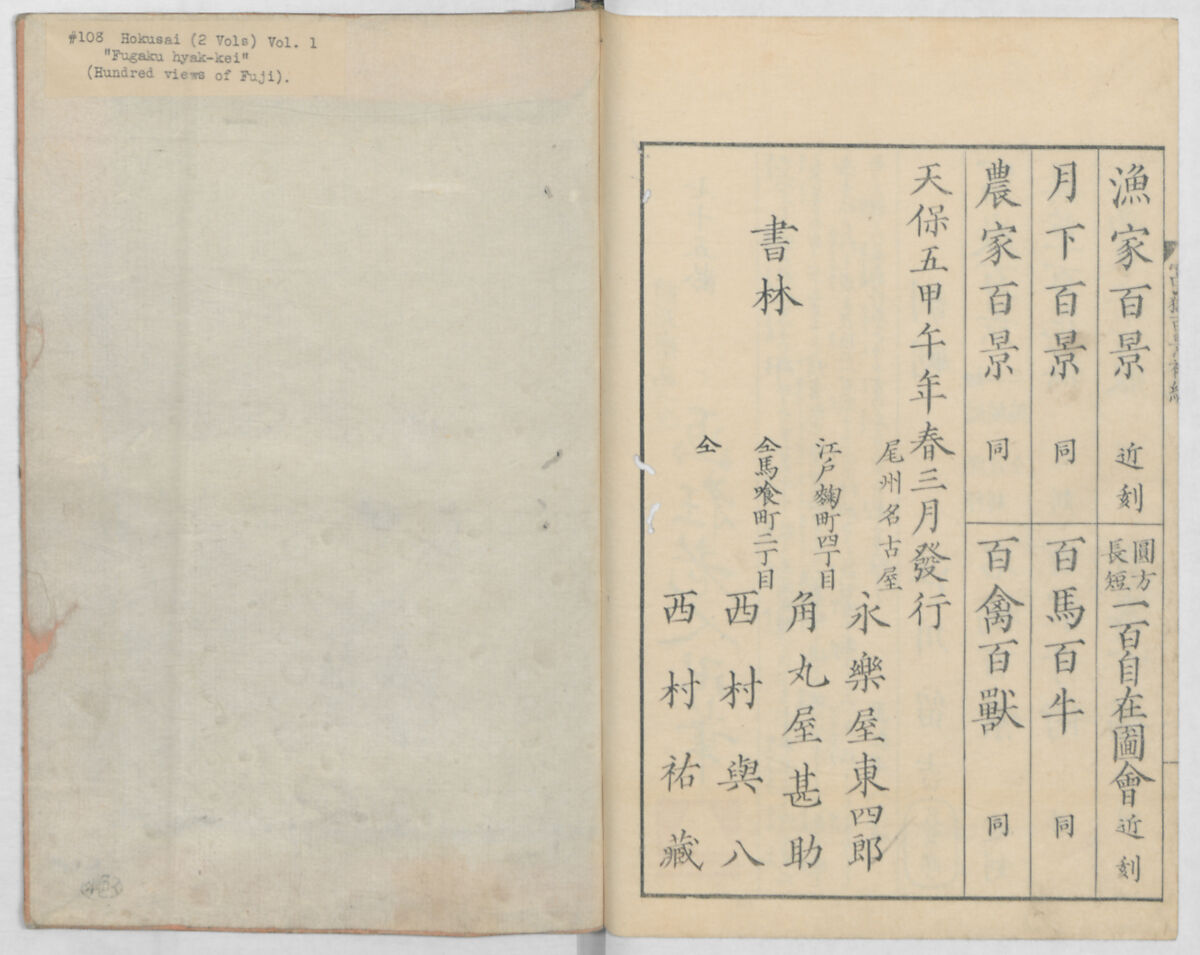 #108 Hokusai (2 Vols) Vol. 1
"Fugaku hyak-kei"
(Hundred views of Fuji).
漁家百景 近刻
月下百景 同
農家百景 同
圓方
長短
二百自在圖會 近刻
百馬百牛 同
百禽百獸 同
天保五甲午年春三月發行
書林
尾州名古屋 永樂屋東四郎
江戸麹町四丁目 角丸屋甚助
仝馬喰町二丁目 西村與八
仝 西村祐藏